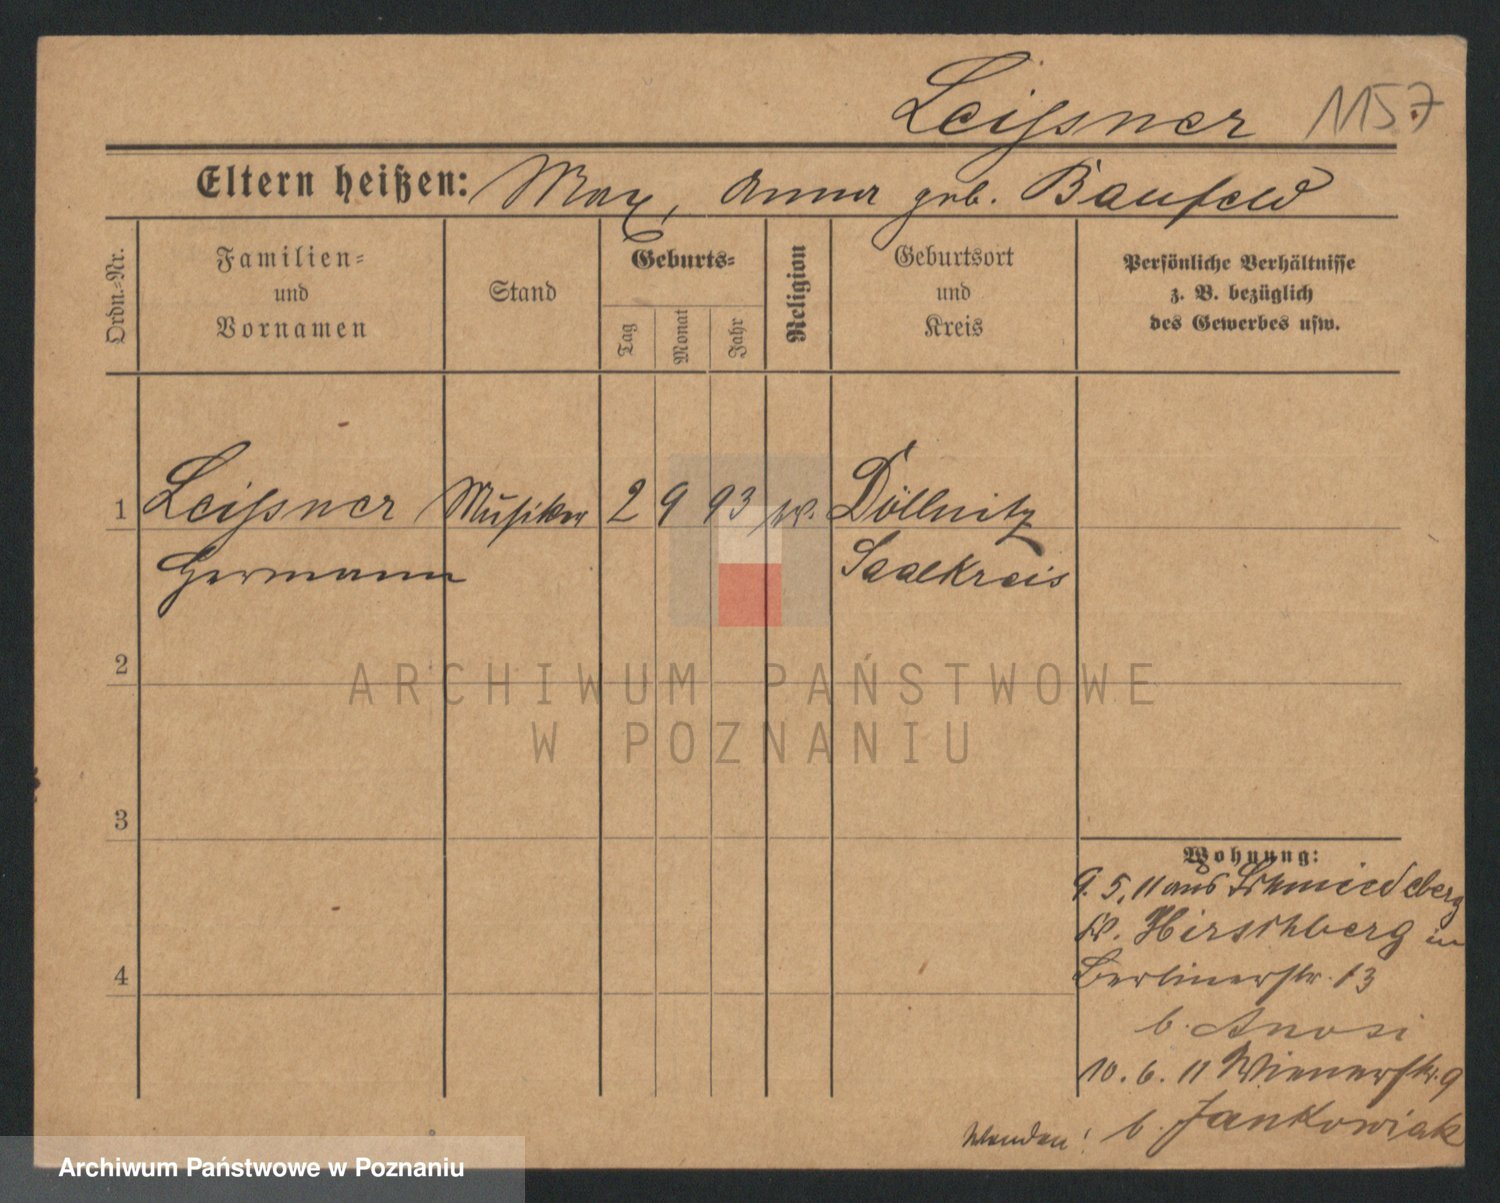 Leißner 1157
Eltern heißen: Max, Anna geb. Baufeld
Ordn.-Nr.
Familien-
und
Vornamen
Stand
Geburts-
Tag
Monat
Jahr
Religion
Geburtsort
und
Kreis
Persönliche Verhältnisse
z. B. bezüglich
des Gewerbes usw.
1 Leißner Musiker 2 9 93 Döllnitz
Hermann Saalkreis
2
3
4
Wohnung:
9. 5. 11 aus Schmiedeberg
Kr. Hirschberg in
Berlinerstr. 13
b. Anosi
10. 6. 11 Wienerstr. 9
b. Jankowiak
Wenden!
ARCHIWUM PAŃSTWOWE
W POZNANIU
Archiwum Państwowe w Poznaniu